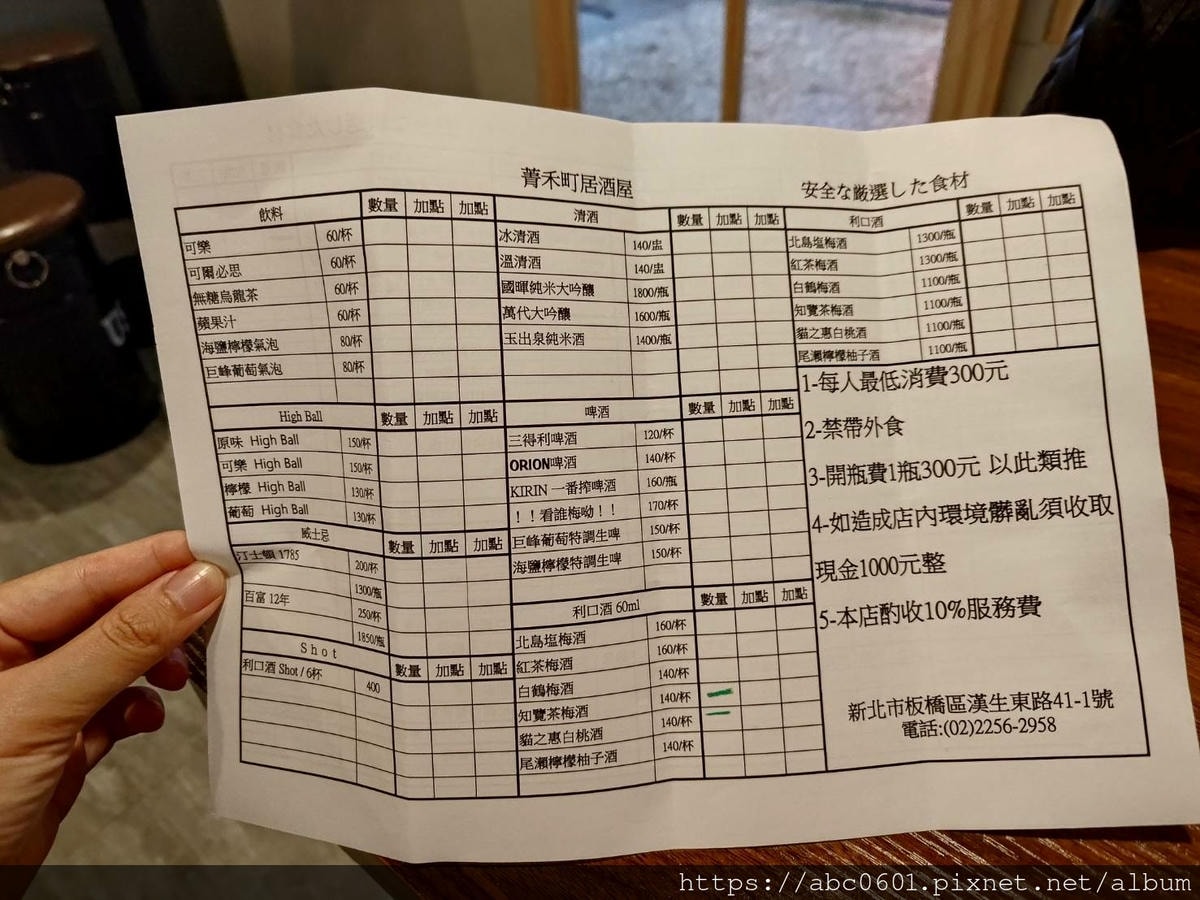 菁禾町居酒屋
安全な厳選した食材
飲料 數量 加點 加點
可樂 60/杯
可爾必思 60/杯
無糖烏龍茶 60/杯
蘋果汁 60/杯
海鹽檸檬氣泡 80/杯
巨峰葡萄氣泡 80/杯
High Ball 數量 加點 加點
原味 High Ball 150/杯
可樂 High Ball 150/杯
檸檬 High Ball 130/杯
葡萄 High Ball 130/杯
威士忌 數量 加點 加點
汀士頓 1785 200/杯
1300/瓶
百富 12年 250/杯
1850/瓶
Shot 數量 加點 加點
利口酒 Shot / 6杯 400
清酒 數量 加點 加點
冰清酒 140/盅
溫清酒 140/盅
國暉純米大吟釀 1800/瓶
萬代大吟釀 1600/瓶
玉出泉純米酒 1400/瓶
啤酒 數量 加點 加點
三得利啤酒 120/杯
ORION啤酒 140/杯
KIRIN 一番搾啤酒 160/瓶
！！看誰梅呦！！ 170/杯
巨峰葡萄特調生啤 150/杯
海鹽檸檬特調生啤 150/杯
利口酒 60ml 數量 加點 加點
北島塩梅酒 160/杯
紅茶梅酒 160/杯
白鶴梅酒 140/杯
知覽茶梅酒 140/杯
貓之惠白桃酒 140/杯
尾瀨檸檬柚子酒 140/杯
利口酒 數量 加點 加點
北島塩梅酒 1300/瓶
紅茶梅酒 1300/瓶
白鶴梅酒 1100/瓶
知覽茶梅酒 1100/瓶
貓之惠白桃酒 1100/瓶
尾瀨檸檬柚子酒 1100/瓶
1-每人最低消費300元
2-禁帶外食
3-開瓶費1瓶300元 以此類推
4-如造成店內環境髒亂須收取
現金1000元整
5-本店酌收10%服務費
新北市板橋區漢生東路41-1號
電話:(02)2256-2958
https://abc0601.pixnet.net/album